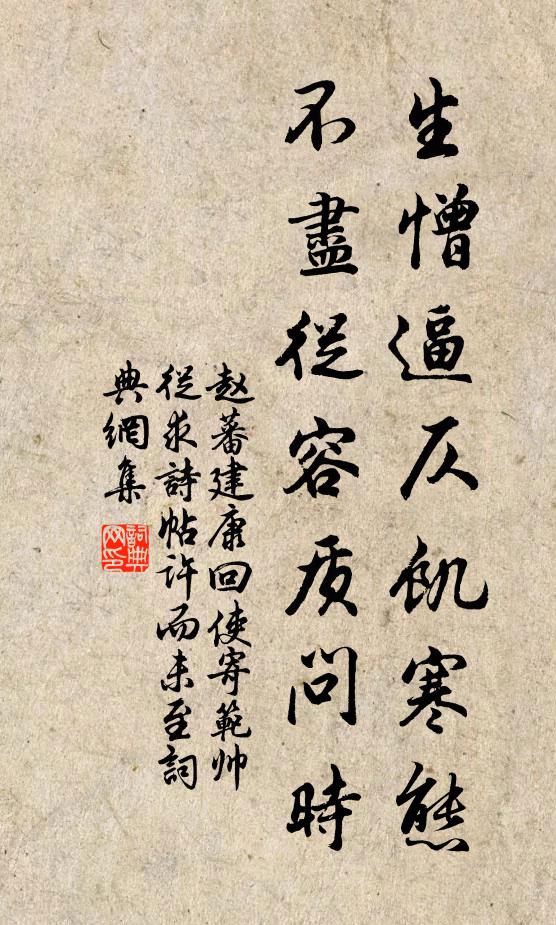 生憎逼仄飢寒態
不盡從容质問時
赵蕃建康回使寄範帅
從求詩帖许而未至詞
典網集
詞典網印